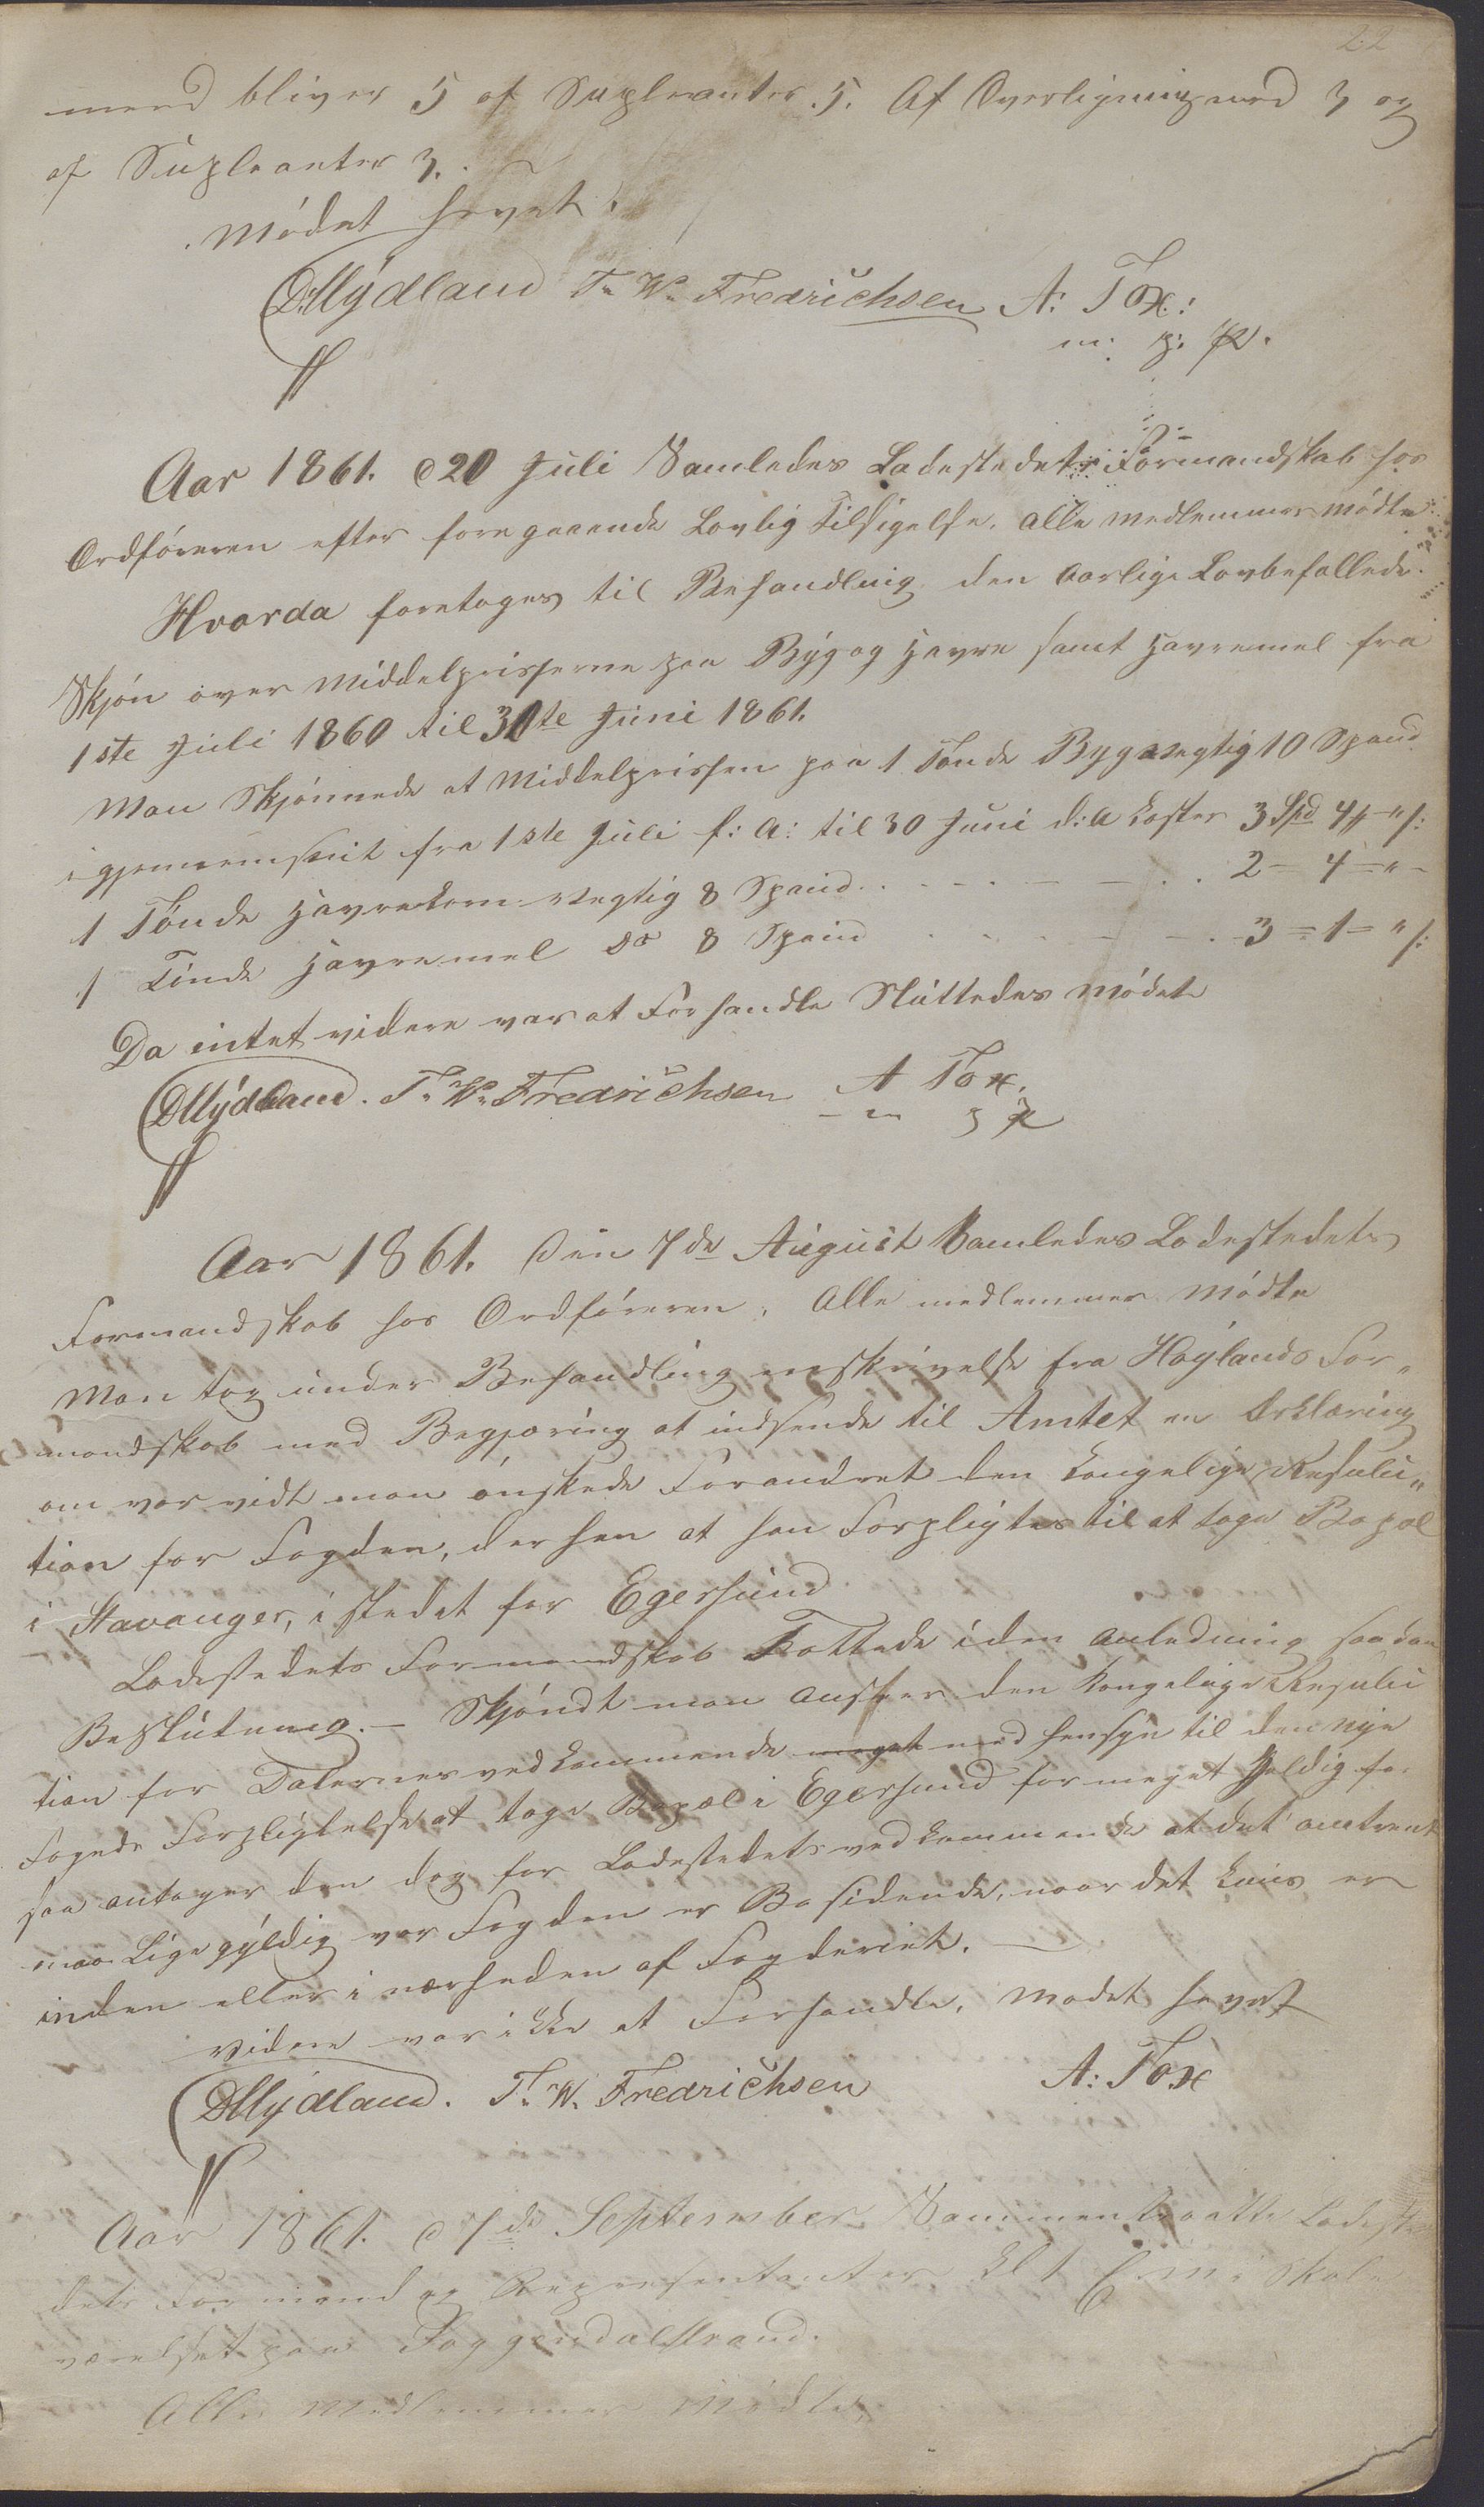 22
mend bliver 5 af Supleanter 5. Af Overligningmend 3 og
af Supleanter 3.
Mödet hævet.
DMydland T. W. Fredrichsen A: Tox:
m: p: P.
Aar 1861. d 20 Juli Samledes Ladestedets Formandskab hos
Ordföreren efter foregaaende Lovlig Tilsigelse. Alle Medlemmer mödte
Hvorda foretoges til Behandling den Aarlige Lovbefallede
Skjön over Middelprisserne paa Byg og Havre samt Havremel fra
1ste Juli 1860 til 30te Juni 1861.
Man Skjönnede at Middelprissen paa 1 Tönde Byg vegtig 10 Spand
igjennemsnit fra 1ste Juli f: A: til 30 Juni d: A koster 3 Spd 4 # " s:
1 Tönde Havrekorn vegtig 8 Spand . . . 2 - 4 - " -
1 Tönde Havremel do 8 Spand . . . 3 - 1 - " s:
Da intet videre var at Forhandle Sluttedes Mödet
DMydland. T. W. Fredrichsen A Tox.
m p P
Aar 1861. Den 7de August Samledes Ladestedets
Formandskab hos Ordföreren. Alle medlemmer Mödte
Man tog under Behandling en skrivelse fra Höylands For„
mandskab med Begjæring at indsende til Amtet en Erklæring
om vor vidt man önskede Forandret den Kongelige Resulu„
tion for Fogden, derhen at han Forpligtes til at tage Bopæl
i Stavanger, i stedet for Egersund
Ladestedets Formandskab Fattede i den Anledning saadan
Beslutning. – Skjöndt man Anseer den Kongelige Resulu
tion for Dalernes vedkommende meget med hensyn til den nye
Fogeds Forpligtelse at tage Bopæl i Egersund for meget Heldig for
saa antager den dog for Ladestedets vedkommende at det omtrent
maa Ligegyldig vor Fogden er Bosidende, naar det kuns er
inden eller i nærheden af Fogderiet.
Videre var ikke at Forhandle. Mödet hævet
DMydland. T. W. Fredrichsen A: Tox
Aar 1861. d 7de September Sammentraatte Ladeste
dets Formænd og Representanter Kl 1 E. M. i Skole
værelset paa Soggendalstrand.
Alle Medlemmer Mödte.